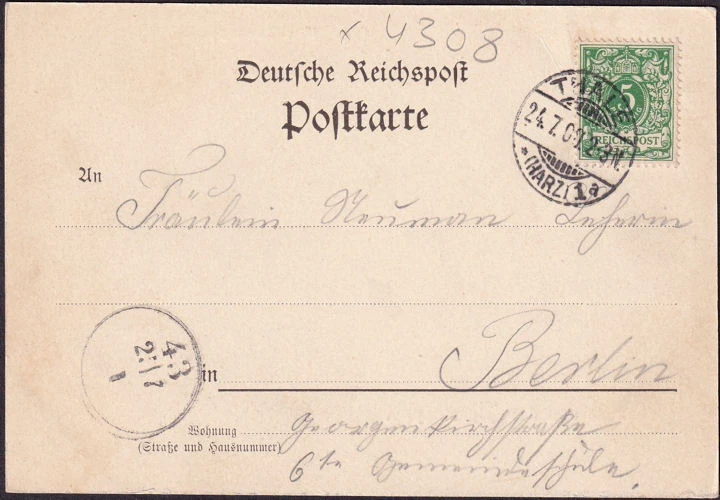 x 4308
Deutsche Reichspost
Postkarte
5
REICHSPOST
THALE
24.7.00. 2-3N.
* (HARZ) 1a
An
Fräulein Neuman Leherin
43
25/7
1
in Berlin
Wohnung
(Straße und Hausnummer)
Georgenkirchstraße
6te Gemeindeschule.